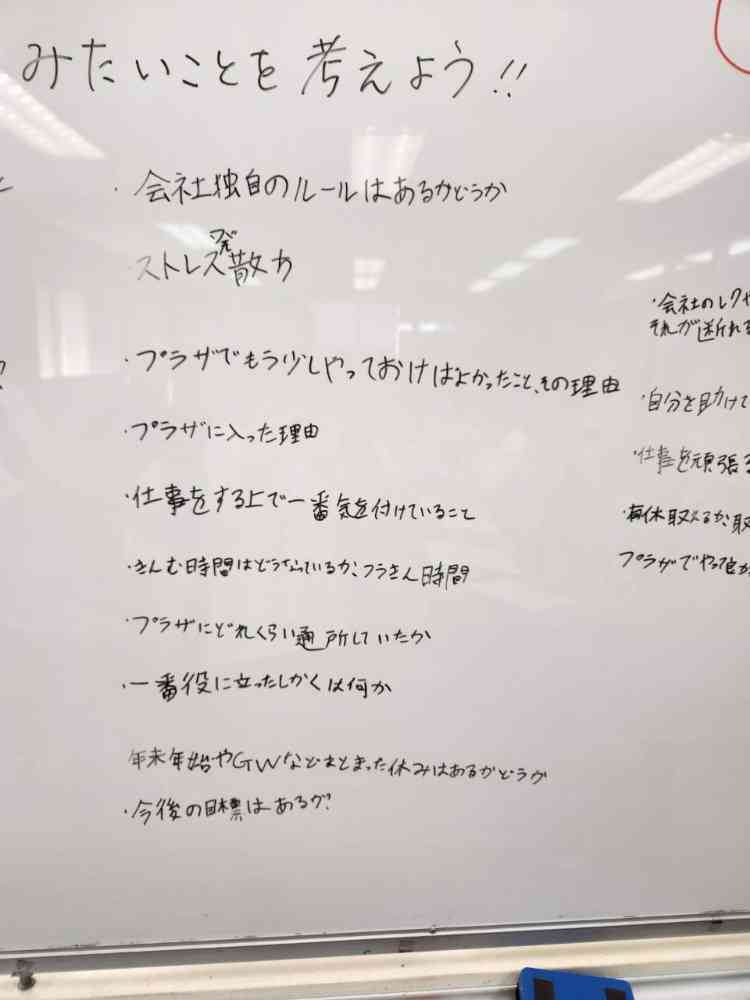 みたいことを考えよう!!
・会社独自のルールはあるかどうか
ストレス発散方
・プラザでもう少しやっておけばよかったこと、その理由
・プラザに入った理由
・仕事をする上で一番気を付けていること
・きんむ時間はどうなっているか、フラきん時間
・プラザにどれくらい通所していたか
・一番役に立ったしかくは何か
年末年始やGWなどまとまった休みはあるかどうか
・今後の目標はあるか?
・会社のレクや
それが断れる
・自分を助けて
・仕事を頑張る
・有休取えるか、取
プラザでやって良か